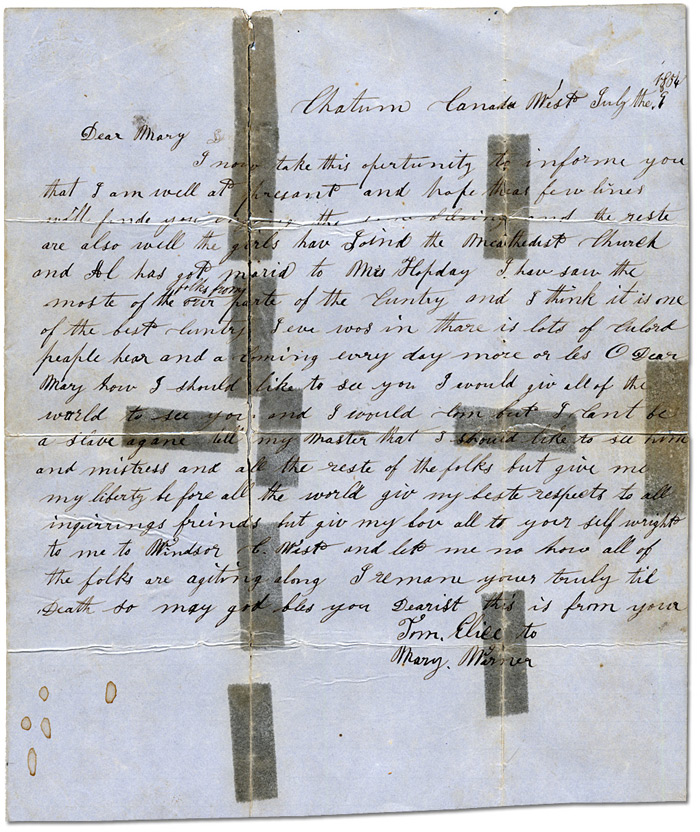 1854
Chatum Canada West July the
Dear Mary
I now take this opertunity to informe you
that I am well at presant and hope theas few lines
will finde you the same and the reste
are also well the girls hav Joind the Church
and Al has got marid to Mis Hopday I hav saw the
folks from
moste of the our parte of the Cuntry and I think it is one
of the best Cuntry I eve was in thare is lots of Culord
peaple hear and a Coming every day more or les O Dear
Mary how I should like to see you I would give all of the
world to see you and I would but I Cant be
a slave agane tell my Master that I should like to see him
and mistress and all the reste of the folks but give me
my liberty before all the world giv my beste respects to all
inquirrings freinds but giv my lov all to your self wright
to me to Windsor C. West and let me no how all of
the folks are agiting along I remane yours truly til
Death so may god bles you Dearist this is from your
Tom. to
Mary. Warner